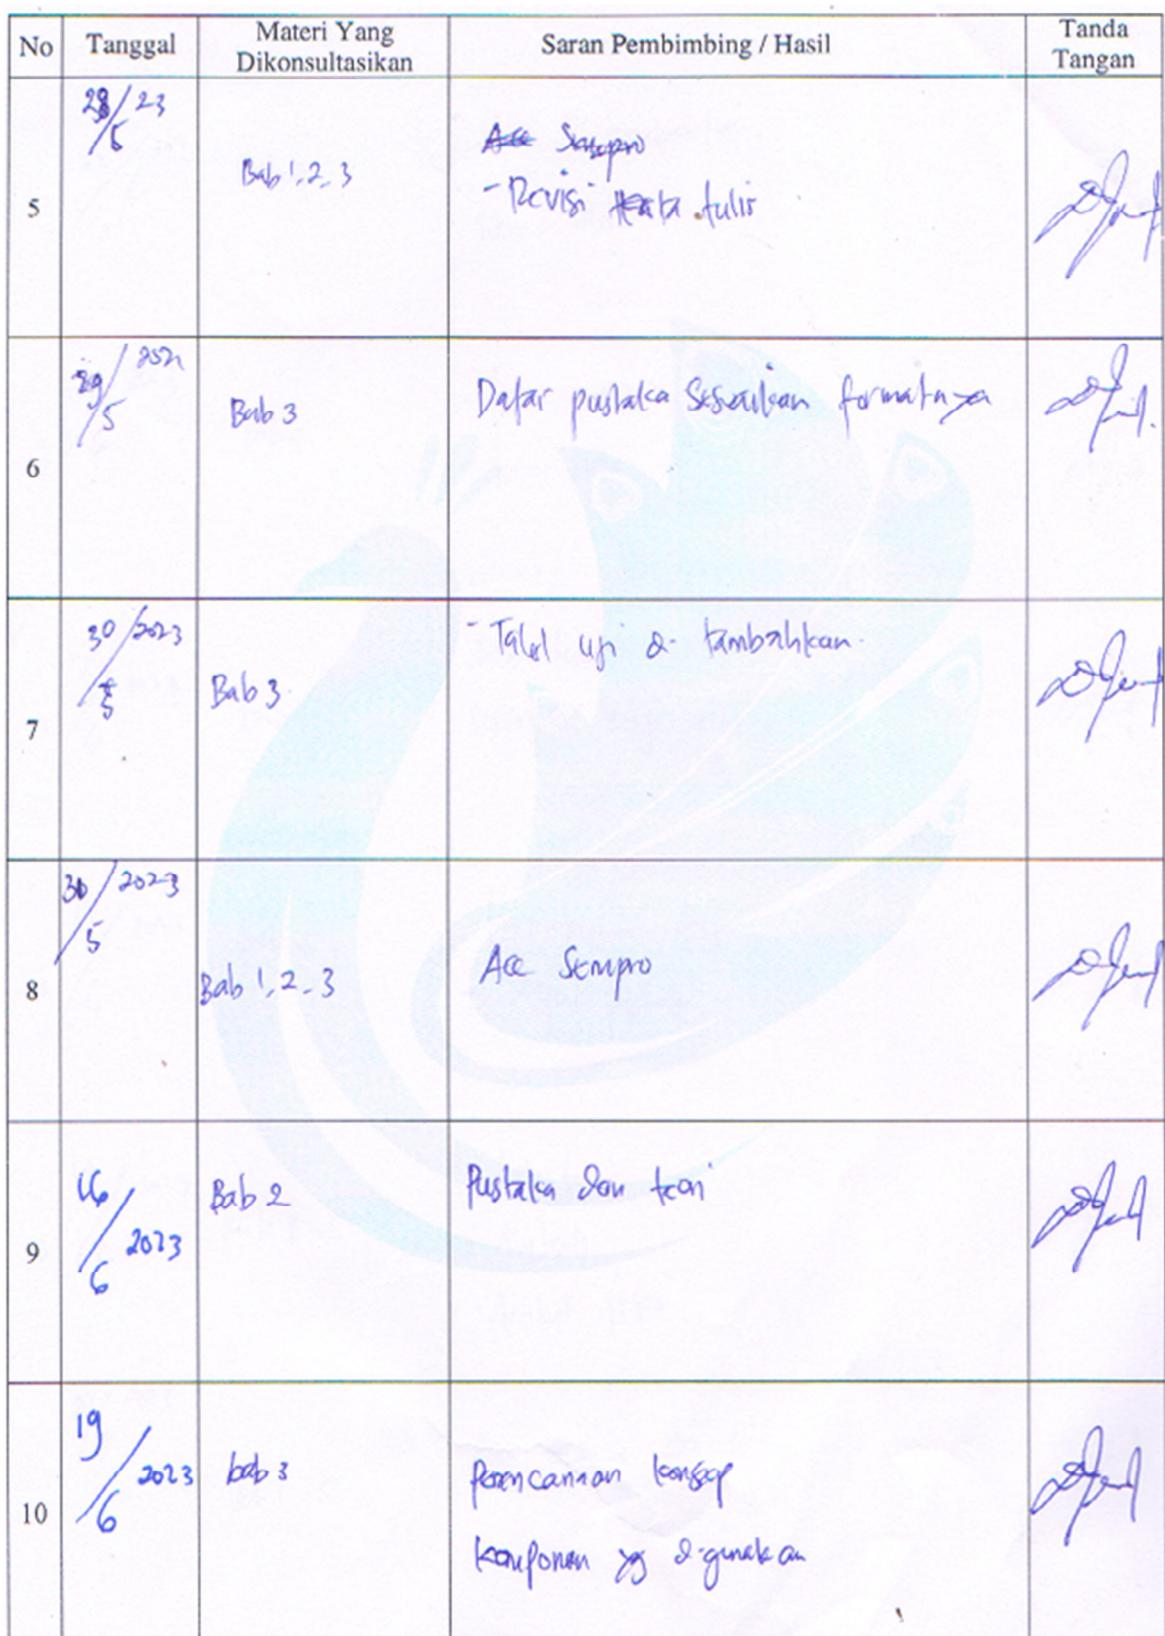 No Tanggal Materi Yang Dikonsultasikan Saran Pembimbing / Hasil Tanda Tangan
5 28/5 23 Bab 1, 2, 3 Acc Sempro
- Revisi tata tulis
6 29/5 Bab 3 Dafar pustaka Sesuaikan formatnya
7 30/5 2023 Bab 3. - Tabel uji di tambahkan.
8 30/5 2023 Bab 1, 2, 3 Acc Sempro
9 16/6 2023 Bab 2 Pustaka dan teori
10 19/6 2023 bab 3 Perencanaan konsep
komponen yg digunakan